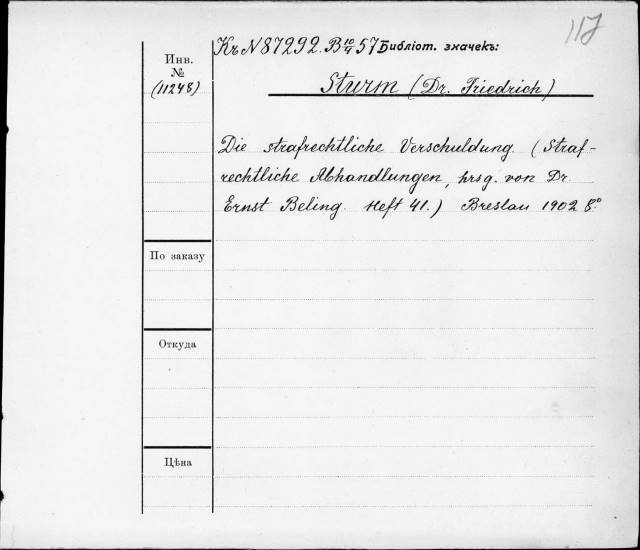 117
Кѣ N 87292. B 10/4 57 Библіот. значекъ:
Инв.
№
(11248)
Sturm (Dr. Friedrich)
Die strafrechtliche Verschuldung. (Straf-
rechtliche Abhandlungen, hrsg. von Dr
Ernst Beling. Heft 41.) Breslau 1902 8°.
По заказу
Откуда
Цѣна